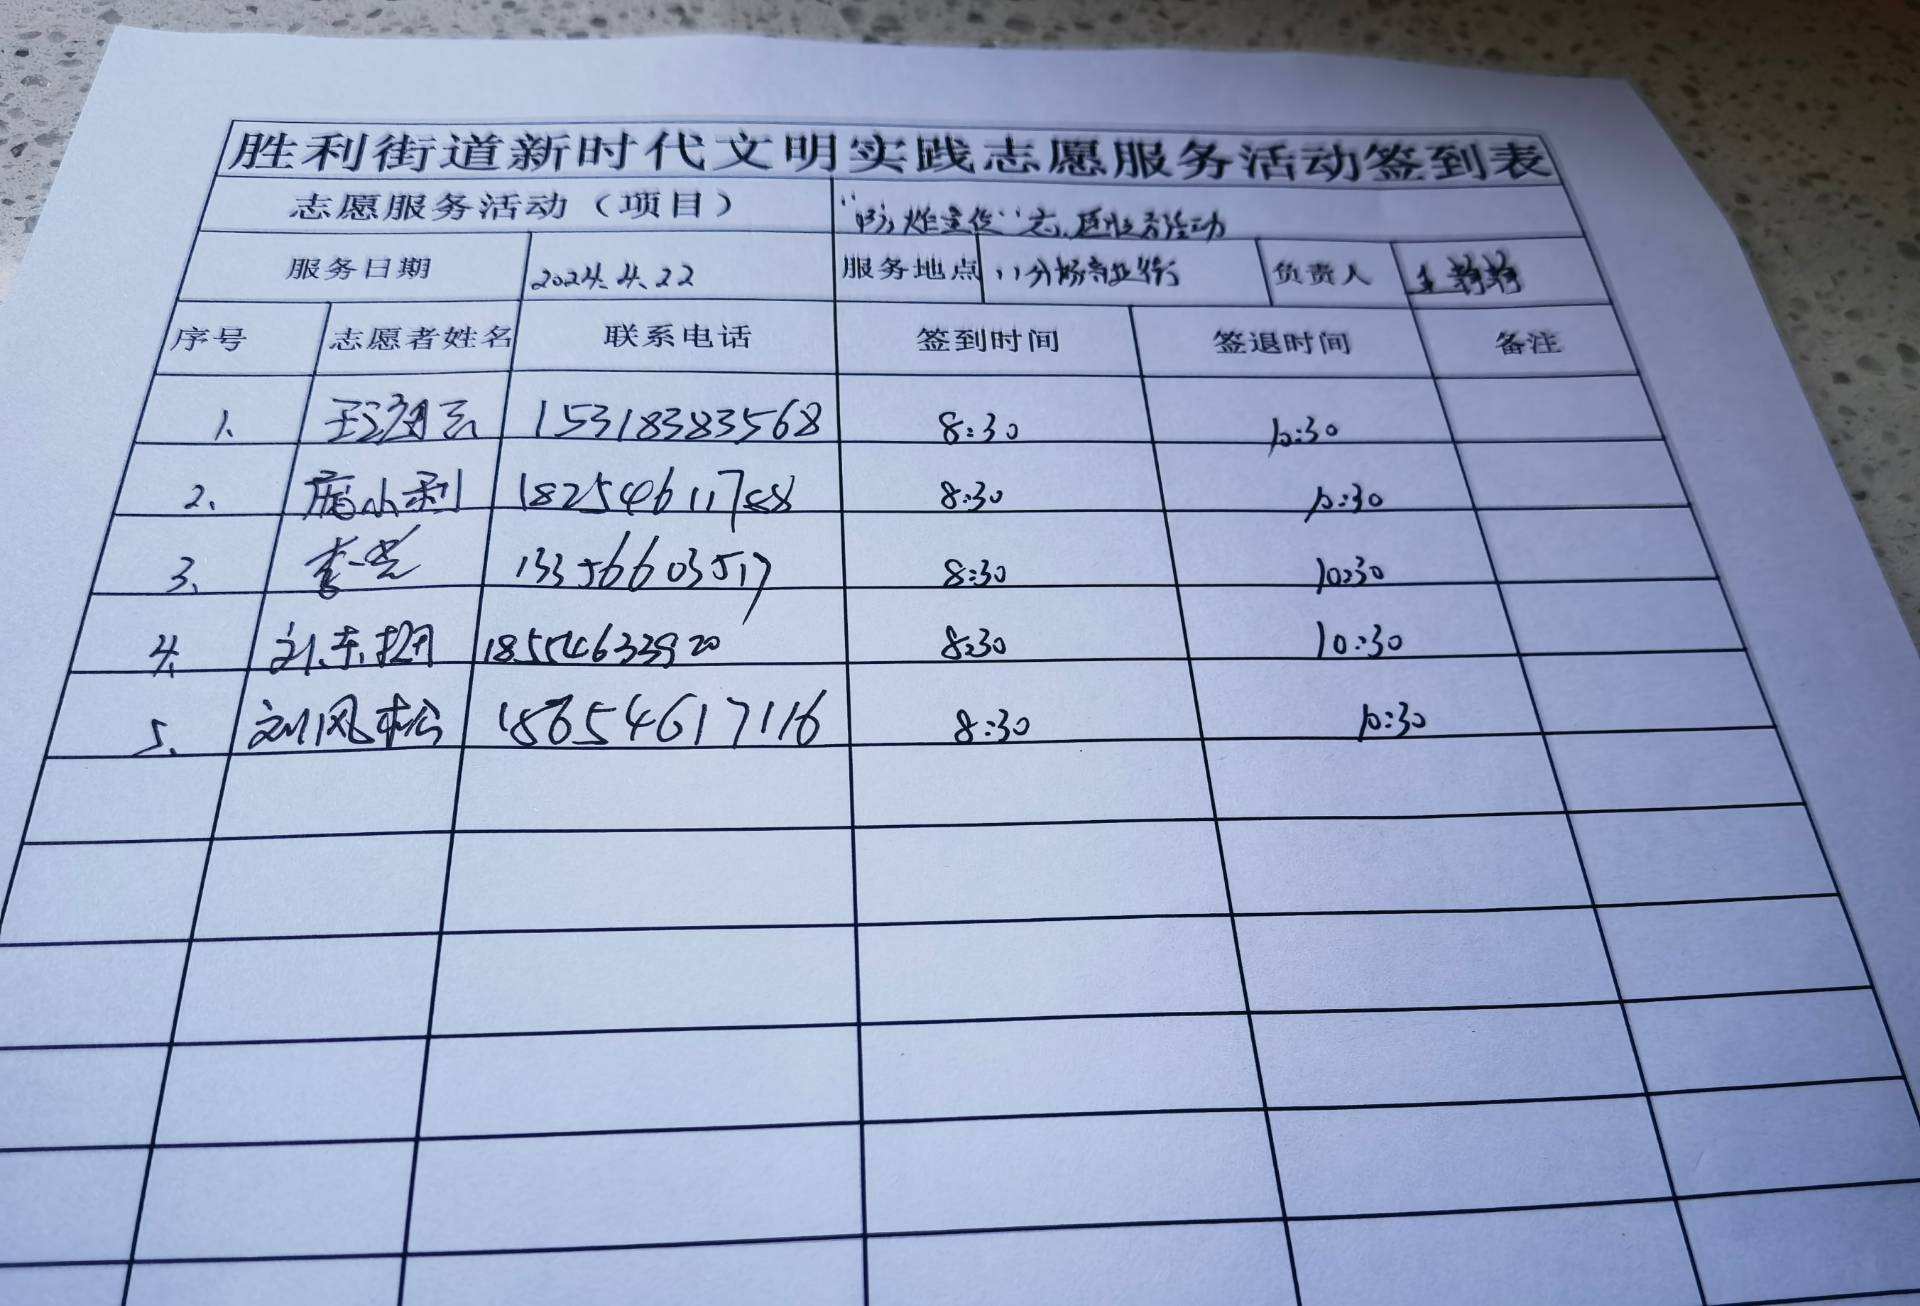 胜利街道新时代文明实践志愿服务活动签到表
志愿服务活动（项目） “防诈宣传”志愿服务活动
服务日期 2024.4.22 服务地点 11分场商业街 负责人 王
序号 志愿者姓名 联系电话 签到时间 签退时间 备注
1、 15318383568 8:30 10:30
2、 庞小利 8:30 10:30
3、 13356603517 8:30 10:30
4、 刘东 18554633920 8:30 10:30
5、 刘风松 18654617116 8:30 10:30